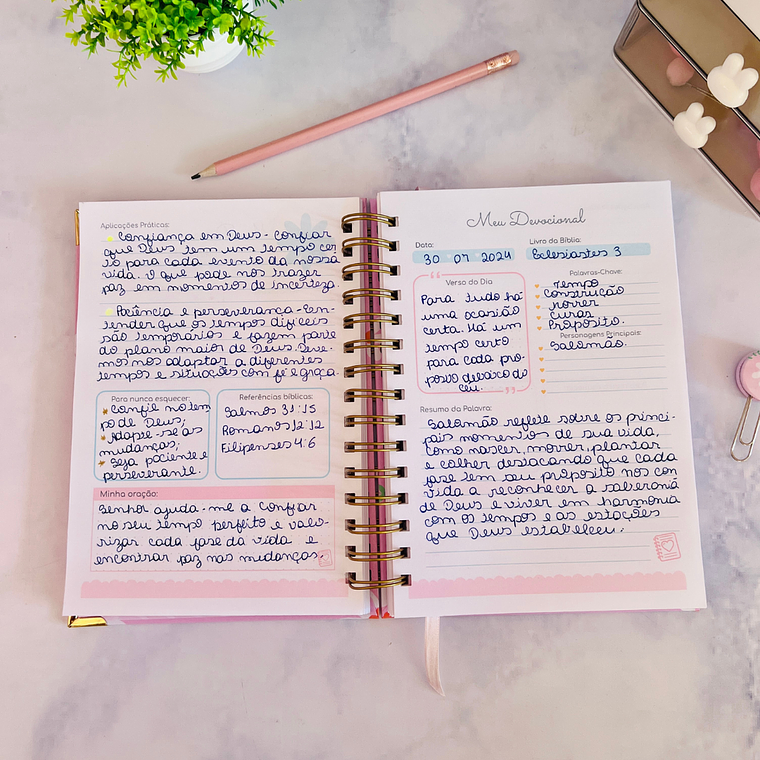 Aplicações Práticas:
Confiança em Deus - Confiar
que Deus tem um tempo cer
to para cada evento da nossa
vida. O que pode nos trazer
paz em momentos de incerteza.
Paciência e perseverança - En-
tender que os tempos difíceis
são temporários e fazem parte
do plano maior de Deus. Deve-
mos nos adaptar a diferentes
tempos e situações com fé e graça.
Para nunca esquecer:
Confie no tem
po de Deus;
Adapte-se às
mudanças;
Seja paciente e
perseverante.
Referências bíblicas:
Salmos 31:15
Romanos 12:12
Filipenses 4:6
Minha oração:
Senhor ajuda-me a confiar
no seu tempo perfeito e valo-
rizar cada fase da vida e
encontrar paz nas mudanças.
Meu Devocional
Data:
30 07 2024
Livro da Bíblia:
Eclesiastes 3
Verso do Dia
Para tudo há
uma ocasião
certa. Há um
tempo certo
para cada pro-
posito debaixo do
céu.
Palavras-Chave:
Tempo
Construção
morrer
curar
Propósito.
Personagens Principais:
Salomão.
Resumo da Palavra:
Salomão reflete sobre os princi-
pais momentos de sua vida,
como nascer, morrer, plantar
e colher destacando que cada
fase tem seu propósito nos con
vida a reconhecer a soberania
de Deus e viver em harmonia
com os tempos e as estações
que Deus estabeleceu.